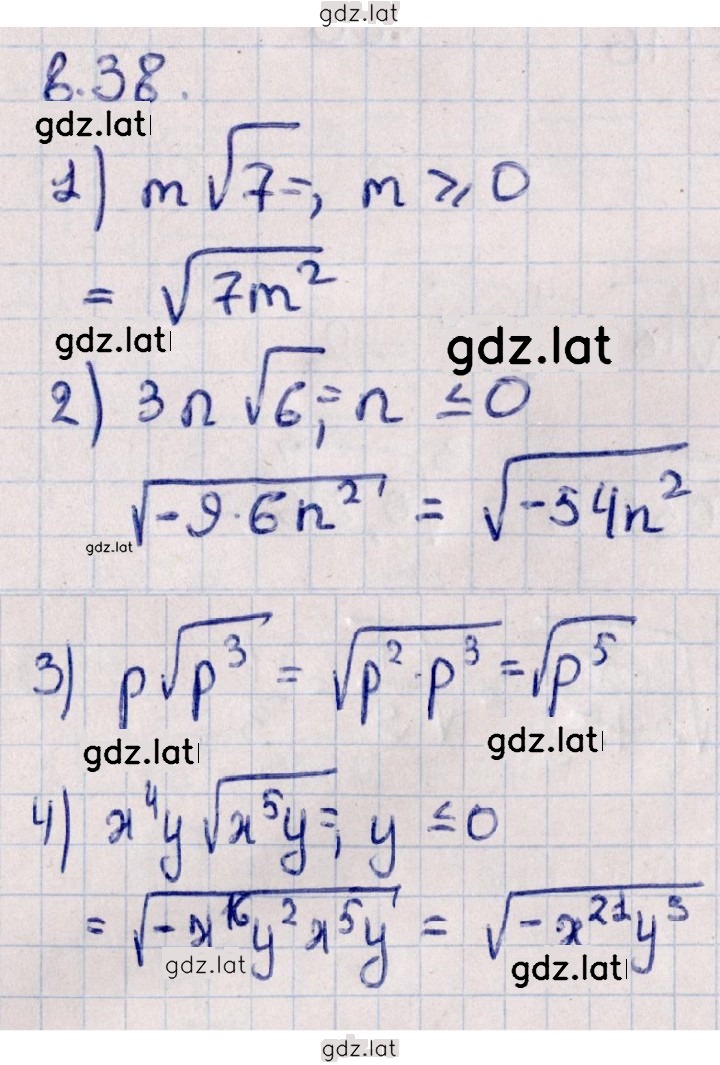 gdz.lat
в.38.
gdz.lat
1) m√7 =; m ⩾ 0
= √7m²
gdz.lat
gdz.lat
2) 3n√6 =; n ≤ 0
√-9·6n² = √-54n²
gdz.lat
3) p√p³ = √p²·p³ = √p⁵
gdz.lat
gdz.lat
4) x⁴y√x⁵y =; y ≤ 0
= √-x¹⁶y²x⁵y = √-x²¹y³
gdz.lat
gdz.lat
gdz.lat